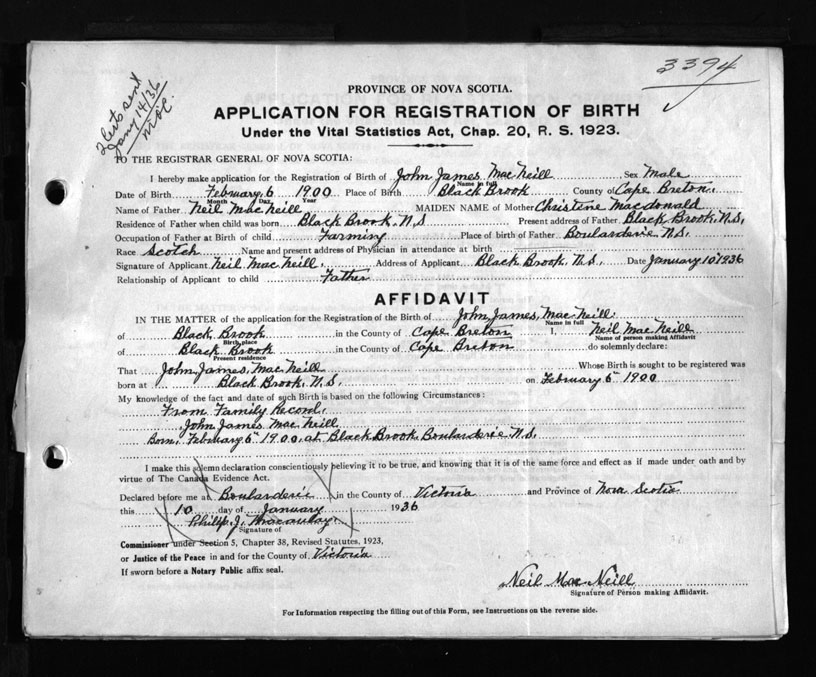 3394
2 Certs sent
Jany 14/36
PROVINCE OF NOVA SCOTIA.
APPLICATION FOR REGISTRATION OF BIRTH
Under the Vital Statistics Act, Chap. 20, R. S. 1923.
TO THE REGISTRAR GENERAL OF NOVA SCOTIA:
I hereby make application for the Registration of Birth of John James Mac Neill Sex Male
Name in full
Date of Birth February 6 1900 Place of Birth Black Brook County of Cape Breton.
Month Day Year
Name of Father Neil Mac Neill MAIDEN NAME of Mother Christine Macdonald
Residence of Father when child was born Black Brook, N.S Present address of Father Black Brook, N.S,
Occupation of Father at Birth of child Farming Place of birth of Father Boularderie N.S.
Race Scotch Name and present address of Physician in attendance at birth
Signature of Applicant Neil Mac Neill. Address of Applicant Black Brook, N.S. Date January 10th 1936
Relationship of Applicant to child Father
AFFIDAVIT
IN THE MATTER of the application for the Registration of the Birth of John, James, Mac Neill.
Name in full
of Black Brook in the County of Cape Breton I, Neil Mac Neill
Birth place Name of person making Affidavit
of Black Brook in the County of Cape Breton do solemnly declare:
Present residence
That John, James, Mac Neill Whose Birth is sought to be registered was
born at Black Brook, N.S. on February 6th 1900
My knowledge of the fact and date of such Birth is based on the following Circumstances:
From Family Record,
John James Mac Neill
Born, February 6th 1900, at Black Brook, Boularderie N.S,
I make this solemn declaration conscientiously believing it to be true, and knowing that it is of the same force and effect as if made under oath and by
virtue of The Canada Evidence Act.
Declared before me at Boularderie in the County of Victoria and Province of Nova Scotia
this 10 day of January 1936
Philip J. Macaulay
Signature of
Commissioner under Section 5, Chapter 38, Revised Statutes, 1923,
or Justice of the Peace in and for the County of Victoria
If sworn before a Notary Public affix seal.
Neil Mac Neill
Signature of Person making Affidavit.
For Information respecting the filling out of this Form, see Instructions on the reverse side.